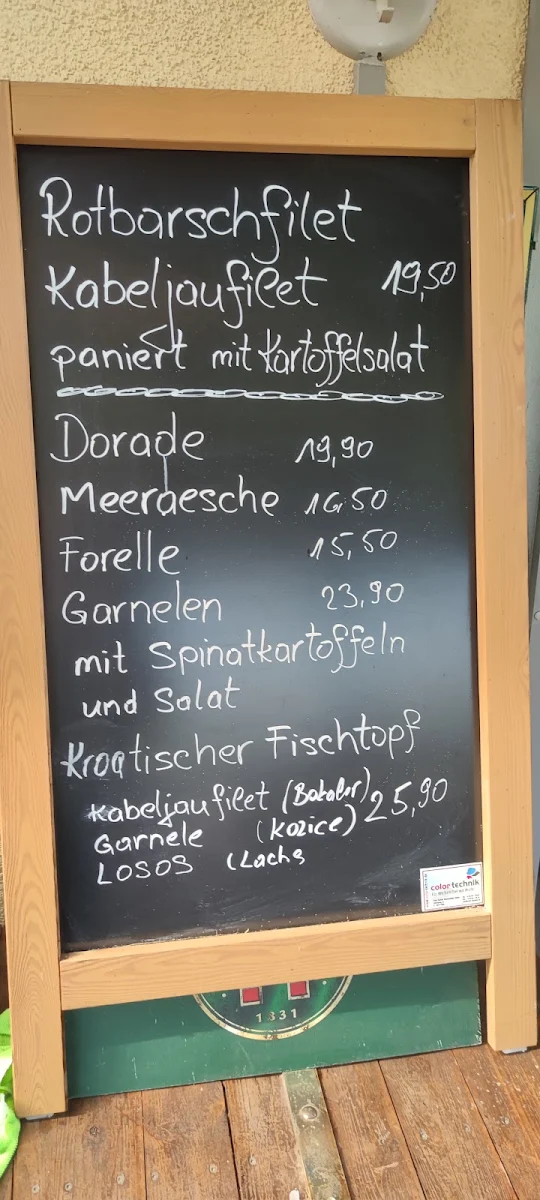 Rotbarschfilet
Kabeljaufilet 19,50
paniert mit Kartoffelsalat
Dorade 19,90
Meeraesche 16,50
Forelle 15,50
Garnelen 23,90
mit Spinatkartoffeln
und Salat
Kroatischer Fischtopf
Kabeljaufilet (Bakalar) 25,90
Garnele (Kozice)
LOSOS (Lachs
colortechnik
1831